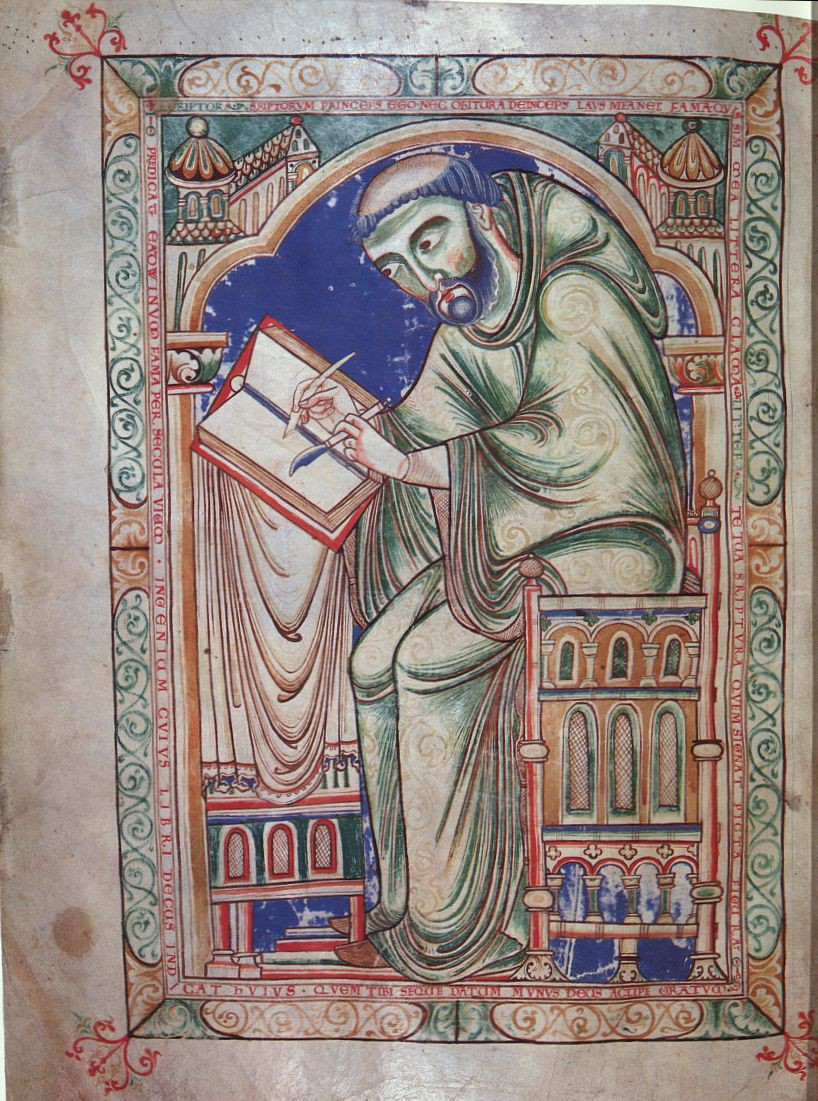 SCRIPTOR SRIPTORVM PRINCEPS EGO NEC OBITURA DEINCEPS LAVS MEA NEC FAMA QVIS
SIM MEA LITTERA CLAMA LITTERA TE TUA SRIPTVRA QVEM SIGNAT PICTA FIGVRA
PREDICAT FAMA PER SECULA VIVVM · INGENIVM CVIVS LIBRI DECVS IND
ICAT hVIVS · QVEM TIBI SEQUE DATVM MVNVS DEUS ACCIPE GRATVM